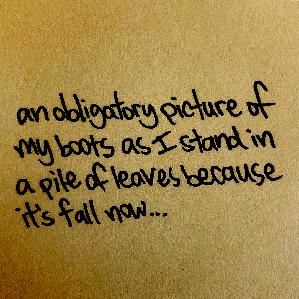 an obligatory picture of
my boots as I stand in
a pile of leaves because
it's fall now...